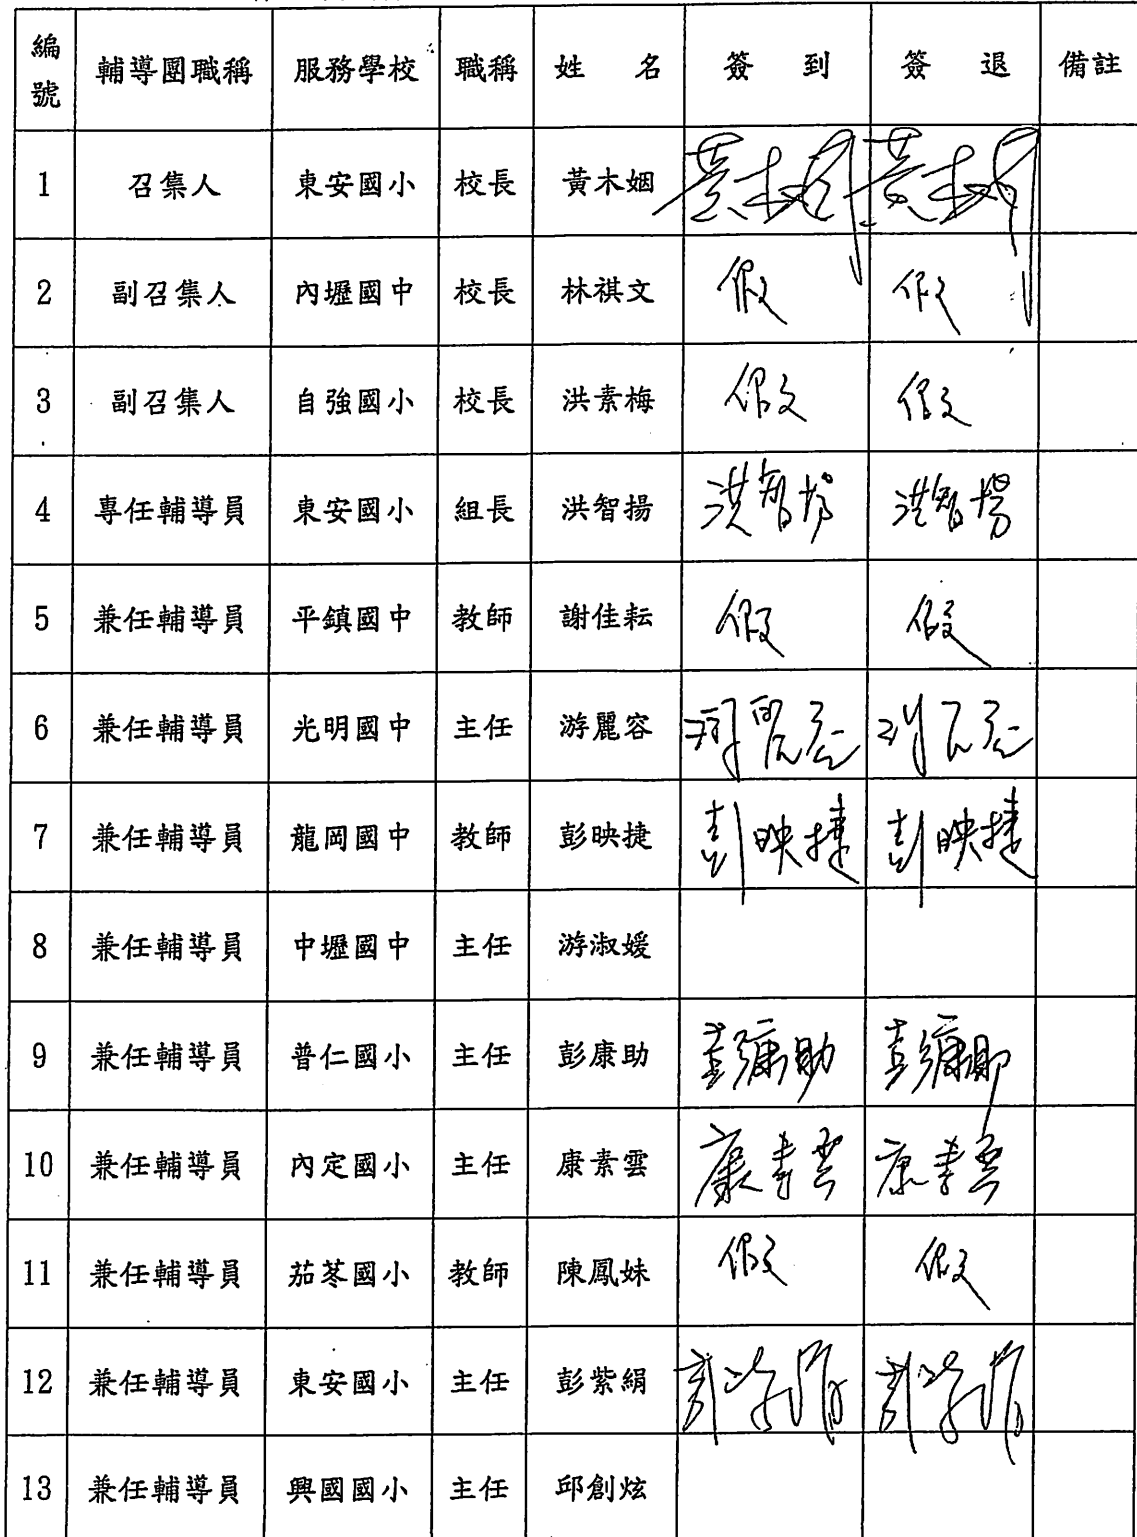 編號 輔導團職稱 服務學校 職稱 姓 名 簽 到 簽 退 備註
1 召集人 東安國小 校長 黃木姻 黃木姻 黃木姻
2 副召集人 內壢國中 校長 林祺文 假 假
3 副召集人 自強國小 校長 洪素梅 假 假
4 專任輔導員 東安國小 組長 洪智揚 洪智揚 洪智揚
5 兼任輔導員 平鎮國中 教師 謝佳耘 假 假
6 兼任輔導員 光明國中 主任 游麗容 游麗容
7 兼任輔導員 龍岡國中 教師 彭映捷 彭映捷 彭映捷
8 兼任輔導員 中壢國中 主任 游淑媛
9 兼任輔導員 普仁國小 主任 彭康助 彭康助 彭康助
10 兼任輔導員 內定國小 主任 康素雲 康素雲 康素雲
11 兼任輔導員 茄苳國小 教師 陳鳳妹 假 假
12 兼任輔導員 東安國小 主任 彭紫絹 彭紫絹 彭紫絹
13 兼任輔導員 興國國小 主任 邱創炫